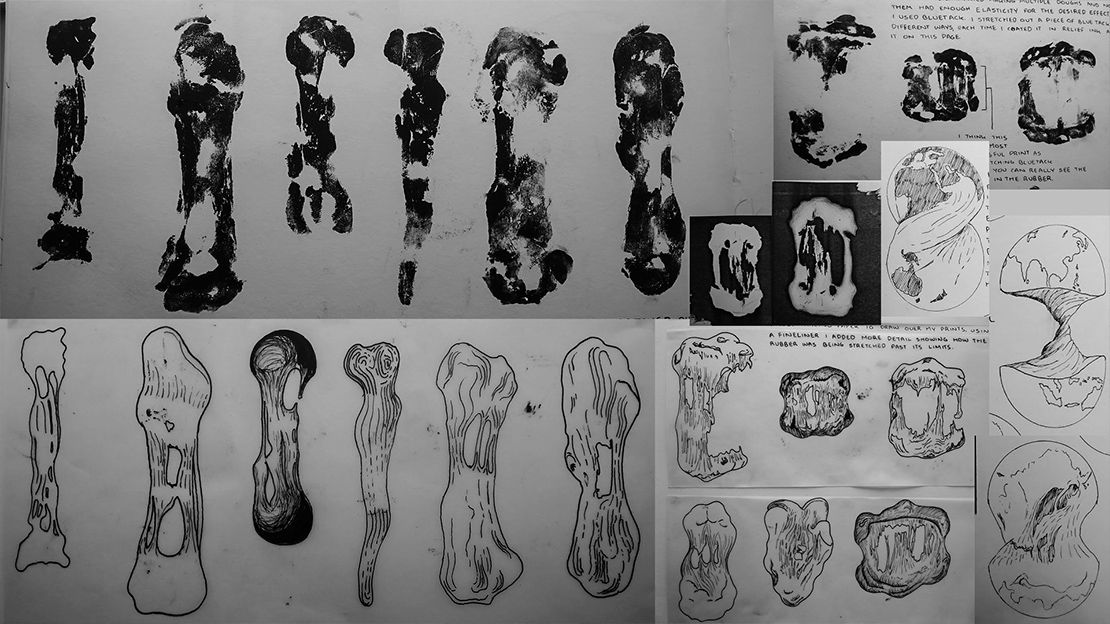 MAKING MULTIPLE DOUGHS AND
THEM HAD ENOUGH ELASTICITY FOR THE DESIRED EFFECT
I USED BLUETACK. I STRETCHED OUT A PIECE OF BLUETACK
DIFFERENT WAYS, EACH TIME I COATED IT IN RELIEF INK
IT ON THIS PAGE.
I THINK THIS
MOST
SFUL PRINT AS
TCHING BLUETACK
YOU CAN REALLY SEE THE
IN THE RUBBER.
PAPER TO DRAW OVER MY PRINTS. USING
A FINELINER I ADDED MORE DETAIL SHOWING HOW THE
RUBBER WAS BEING STRETCHED PAST ITS LIMITS.